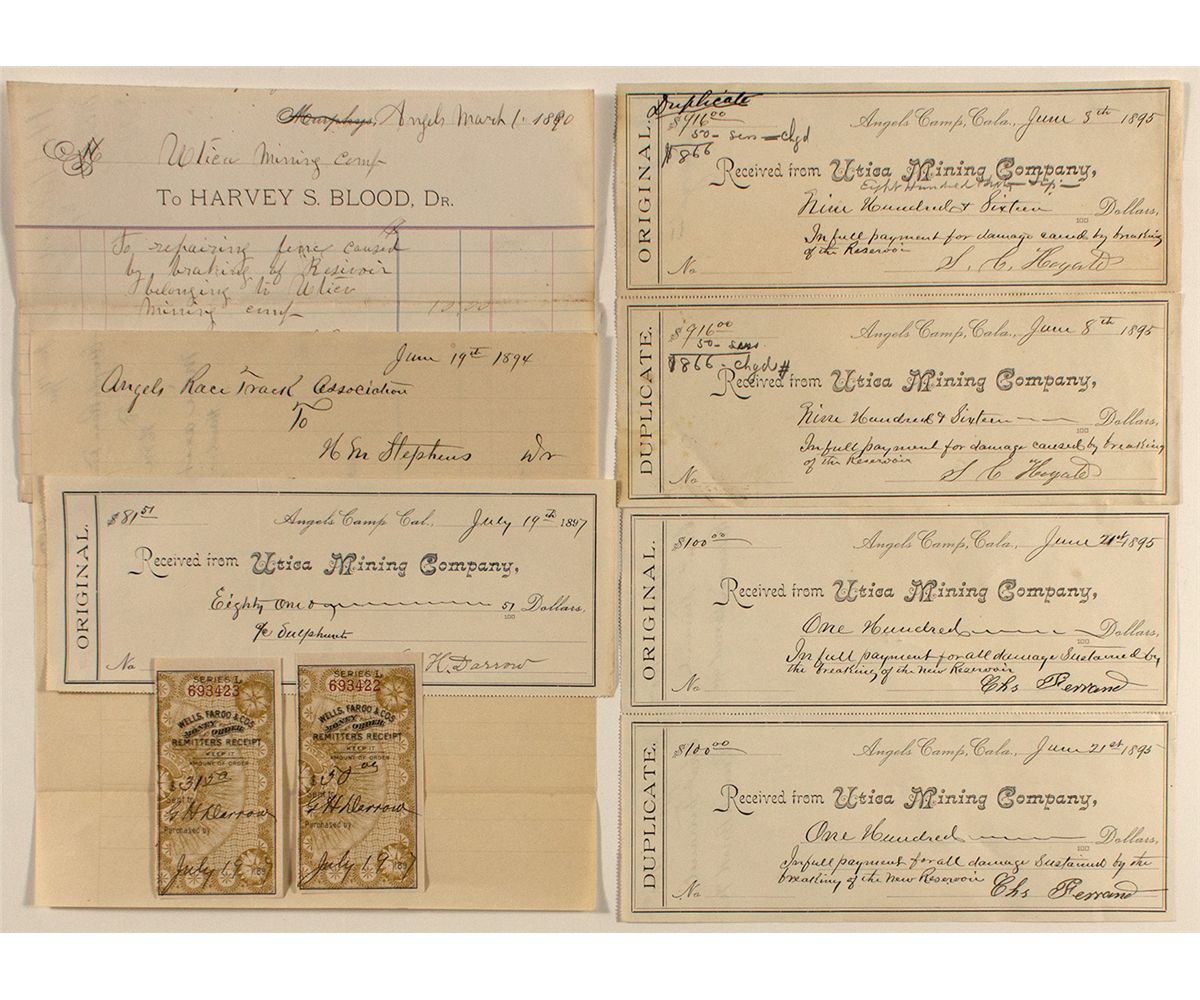 Murphys, Angels March 1. 1890
Utica Mining Comp
To HARVEY S. BLOOD, DR.
To repairing fence caused
by braking of Resivoir
belonging to Utica
Mining Comp 10.00
June 19th 1894
Angels Race Track Association
To
H M Stephens Dr
ORIGINAL.
$81 51 Angels Camp Cal., July 19th 1897
Received from Utica Mining Company,
Eighty One 51/100 Dollars,
a/c Sulphurets
No
H. Darrow
SERIES L
693423
WELLS, FARGO & CO'S
MONEY ORDER
REMITTERS RECEIPT
KEEP IT
AMOUNT OF ORDER
$31 50
Sent to
G H Darrow
Purchased by
July 19 1897
SERIES L
693422
WELLS, FARGO & CO'S
MONEY ORDER
REMITTERS RECEIPT
KEEP IT
AMOUNT OF ORDER
$50 00
G H Darrow
Purchased by
July 19 1897
Duplicate
ORIGINAL.
$916 00 Angels Camp, Cala., June 8th 1895
50 - sers - chgd
$866
Received from Utica Mining Company,
Eight Hundred
Nine Hundred & Sixteen 100 Dollars,
In full payment for damage caused by breaking
of the Reservoir
No
DUPLICATE.
$916 00 Angels Camp, Cala., June 8th 1895
50 - sers.
$866 - chgd #
Received from Utica Mining Company,
Nine Hundred & Sixteen 100 Dollars,
In full payment for damage caused by breaking
of the Reservoir
No
ORIGINAL.
$100 00 Angels Camp, Cala., June 21st 1895
Received from Utica Mining Company,
One Hundred 100 Dollars,
In full payment for all damage Sustained by
the breaking of the New Reservoir
No Chs Ferrand
DUPLICATE.
$100 00 Angels Camp, Cala., June 21st 1895
Received from Utica Mining Company,
One Hundred 100 Dollars,
In full payment for all damage Sustained by the
breaking of the New Reservoir
No Chs Ferrand